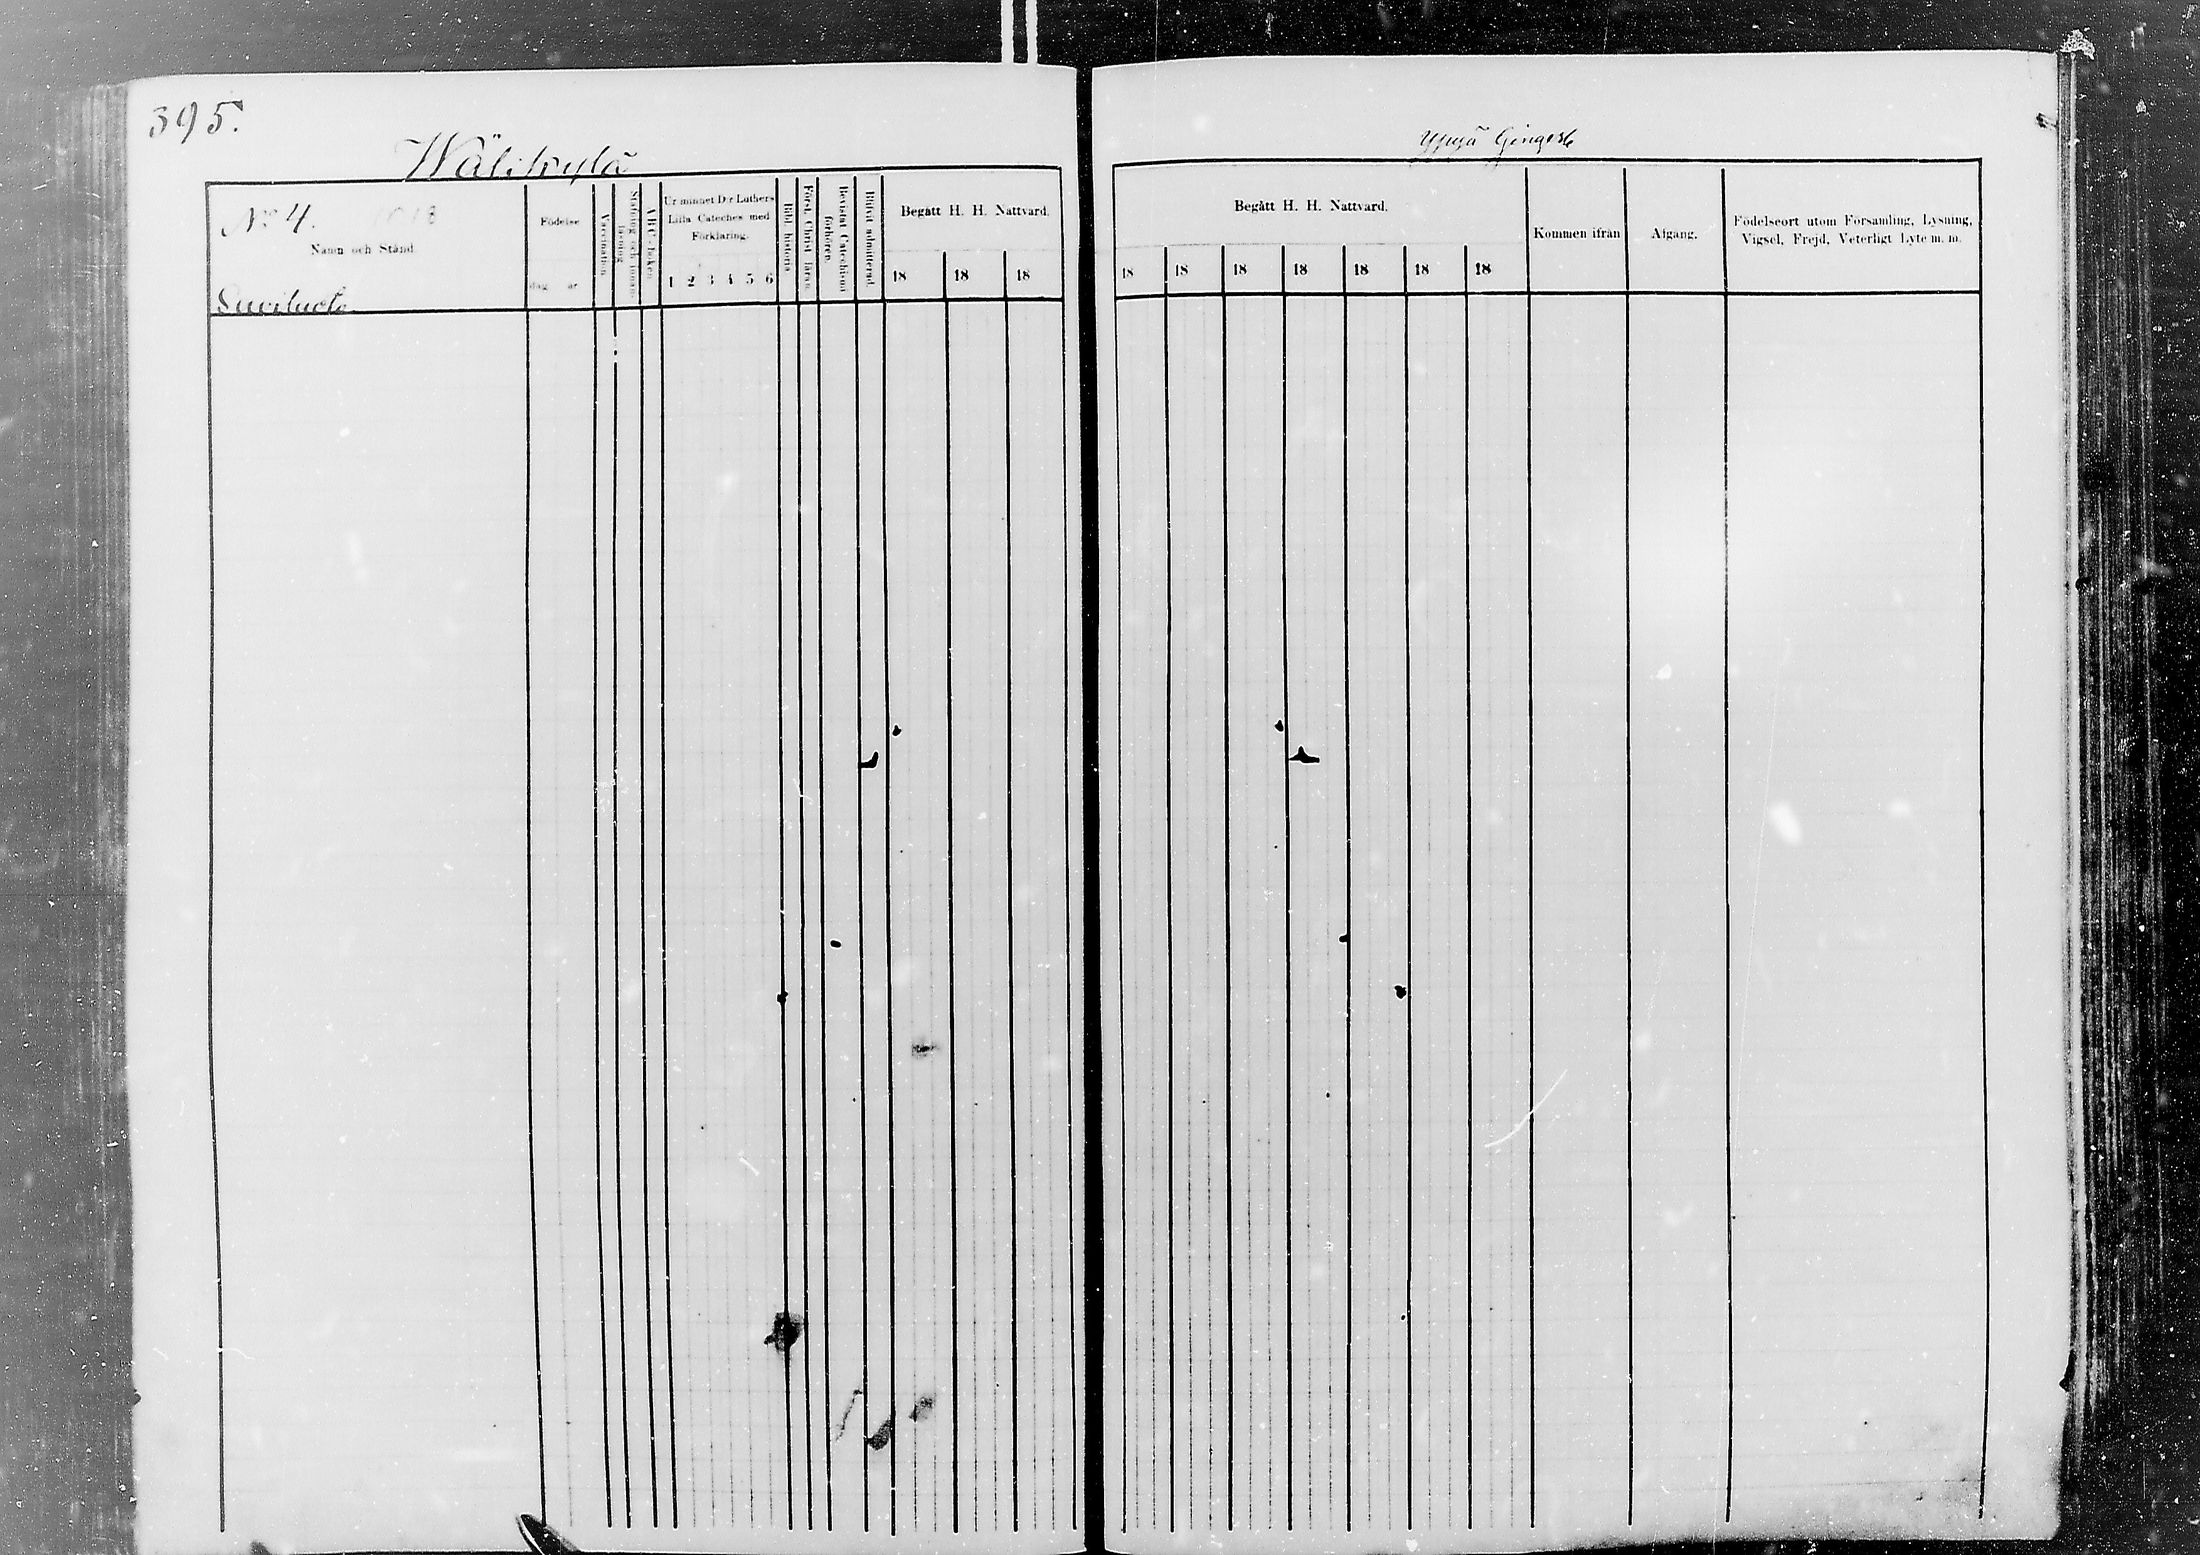 395.
Wälikylä
No 4. 1018
Namn och Stånd.
Födelse
dag år
Vaccination.
Stafning och innan-
läsning.
ABC-boken.
Ur minnet D:r Luthers
Lilla Cateches med
Förklaring.
1 2 3 4 5 6
Bibl. historia.
Först. Christ. läran.
Bevistat Catechismi
förhören.
Blifvit admitterad.
Begått H. H. Nattvard.
18 18 18
Begått H. H. Nattvard.
18 18 18 18 18 18 18
Kommen ifrån
Afgång.
Födelseort utom Församling, Lysning,
Vigsel, Frejd, Veterligt Lyte m. m.